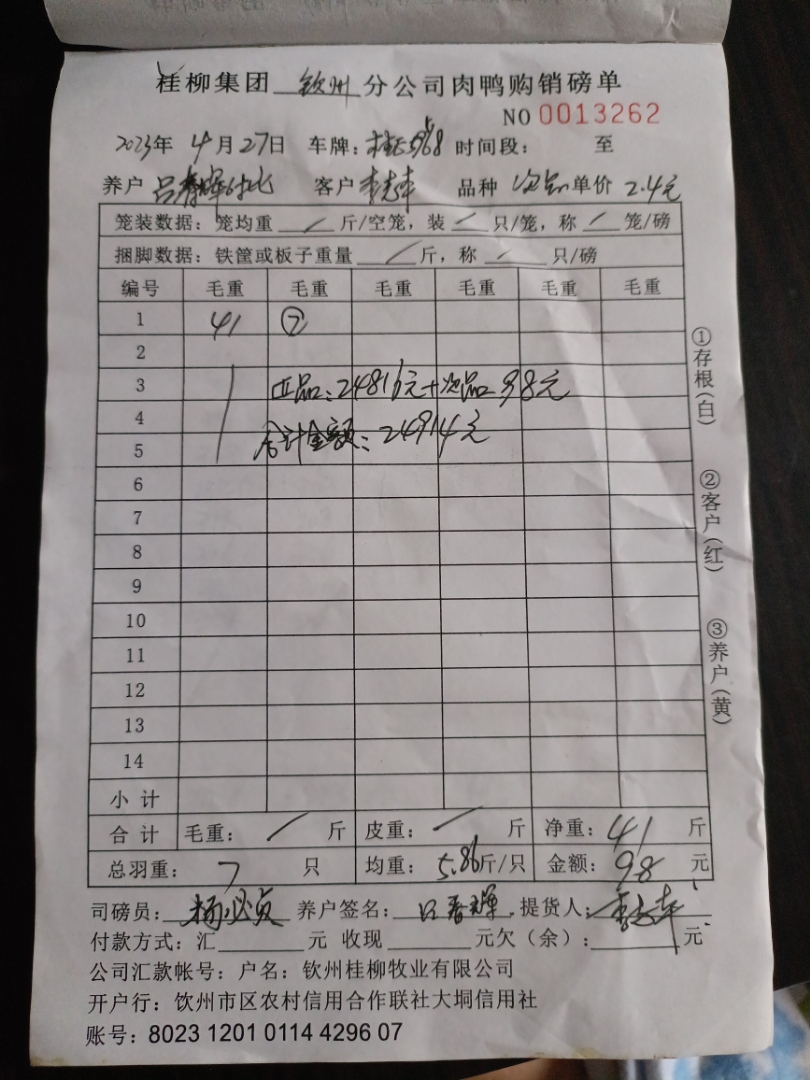 桂柳集团 钦州 分公司肉鸭购销磅单
NO 0013262
2023年 4月27日 车牌: 时间段: 至
养户 吕春晖 客户 李志车 品种 次品 单价 2.4元
笼装数据: 笼均重 / 斤/空笼, 装 / 只/笼, 称 / 笼/磅
捆脚数据: 铁筐或板子重量 / 斤, 称 / 只/磅
编号 毛重 毛重 毛重 毛重 毛重 毛重
1 41 ⑦
2
3 正品:24816元+次品98元
4
合计金额:24914元
5
6
7
8
9
10
11
12
13
14
小计
合计 毛重: / 斤 皮重: / 斤 净重: 41 斤
总羽重: 7 只 均重: 5.86斤/只 金额: 98 元
司磅员: 杨必贞 养户签名: 吕春晖 提货人:
付款方式: 汇 元 收现 元欠(余): 元
公司汇款帐号: 户名: 钦州桂柳牧业有限公司
开户行: 钦州市区农村信用合作联社大垌信用社
账号: 8023 1201 0114 4296 07
①存根(白)
②客户(红)
③养户(黄)